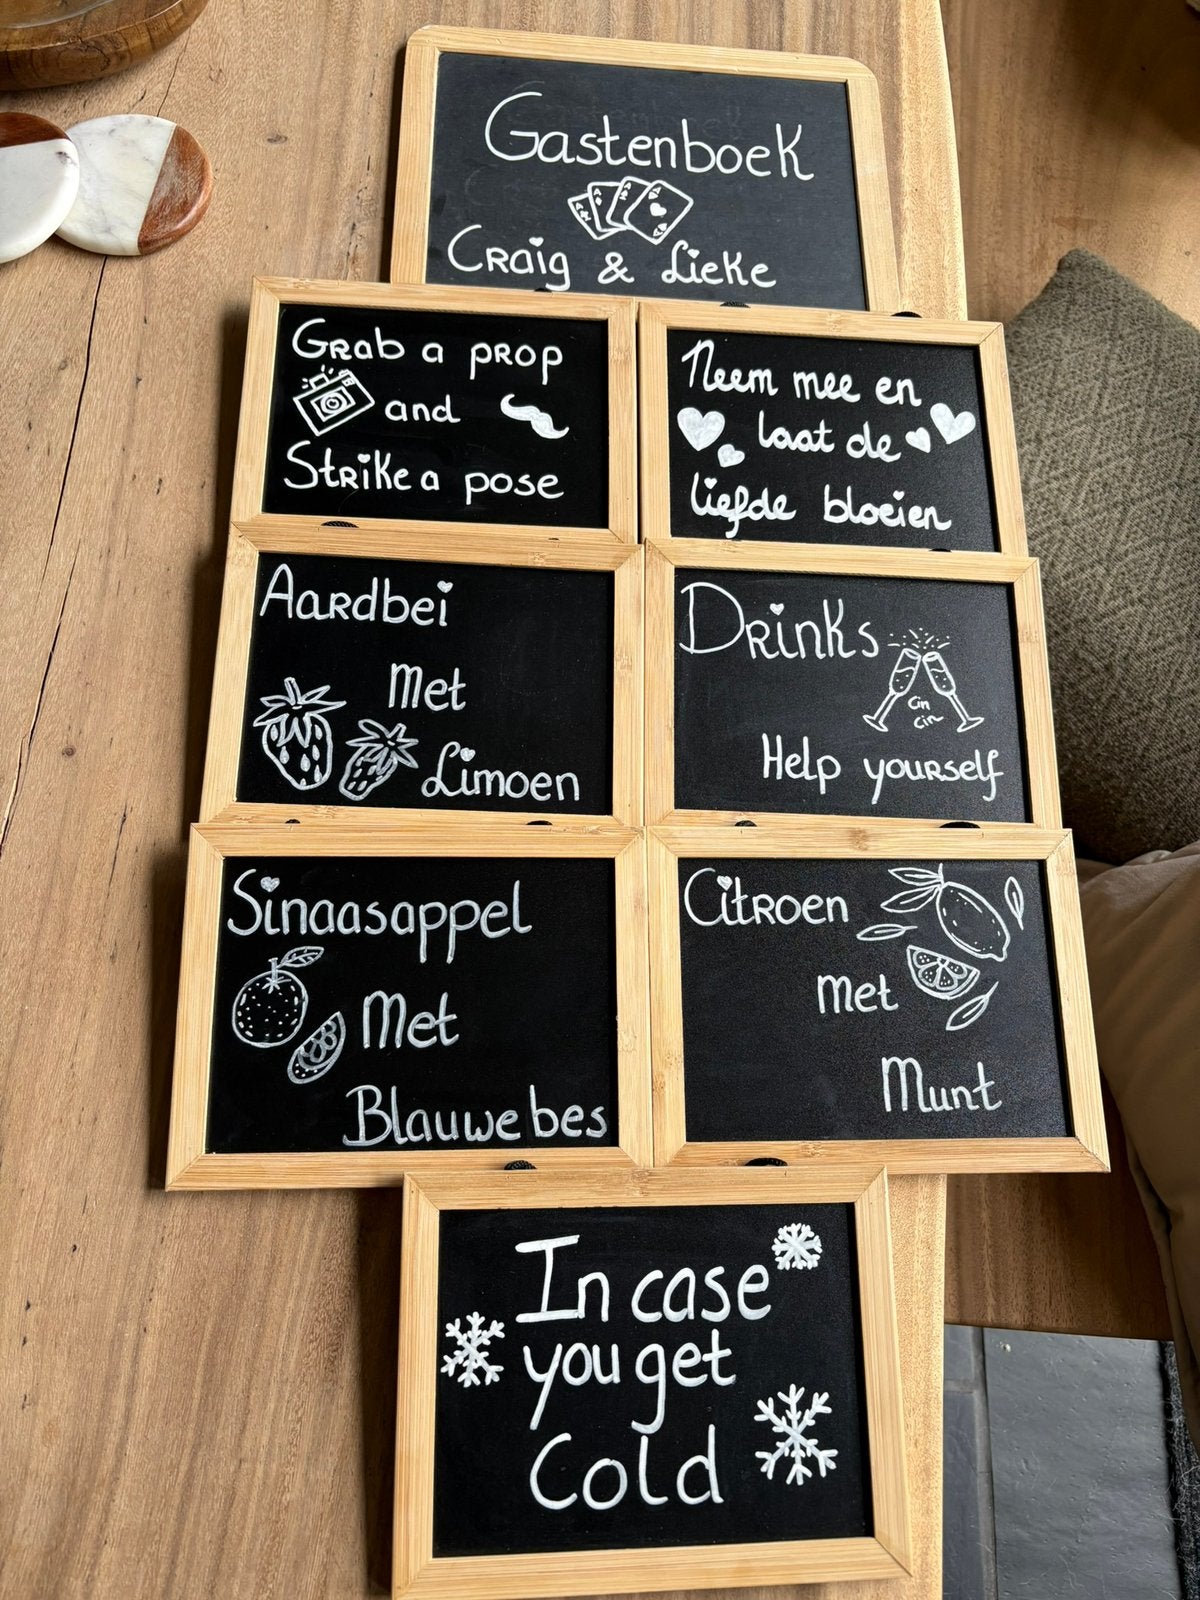 Gastenboek
Craig & Lieke
Grab a prop
and
Strike a pose
Neem mee en
laat de
liefde bloeien
Aardbei
Met
Limoen
Drinks
Cin
cin
Help yourself
Sinaasappel
Met
Blauwe bes
Citroen
Met
Munt
In case
you get
Cold